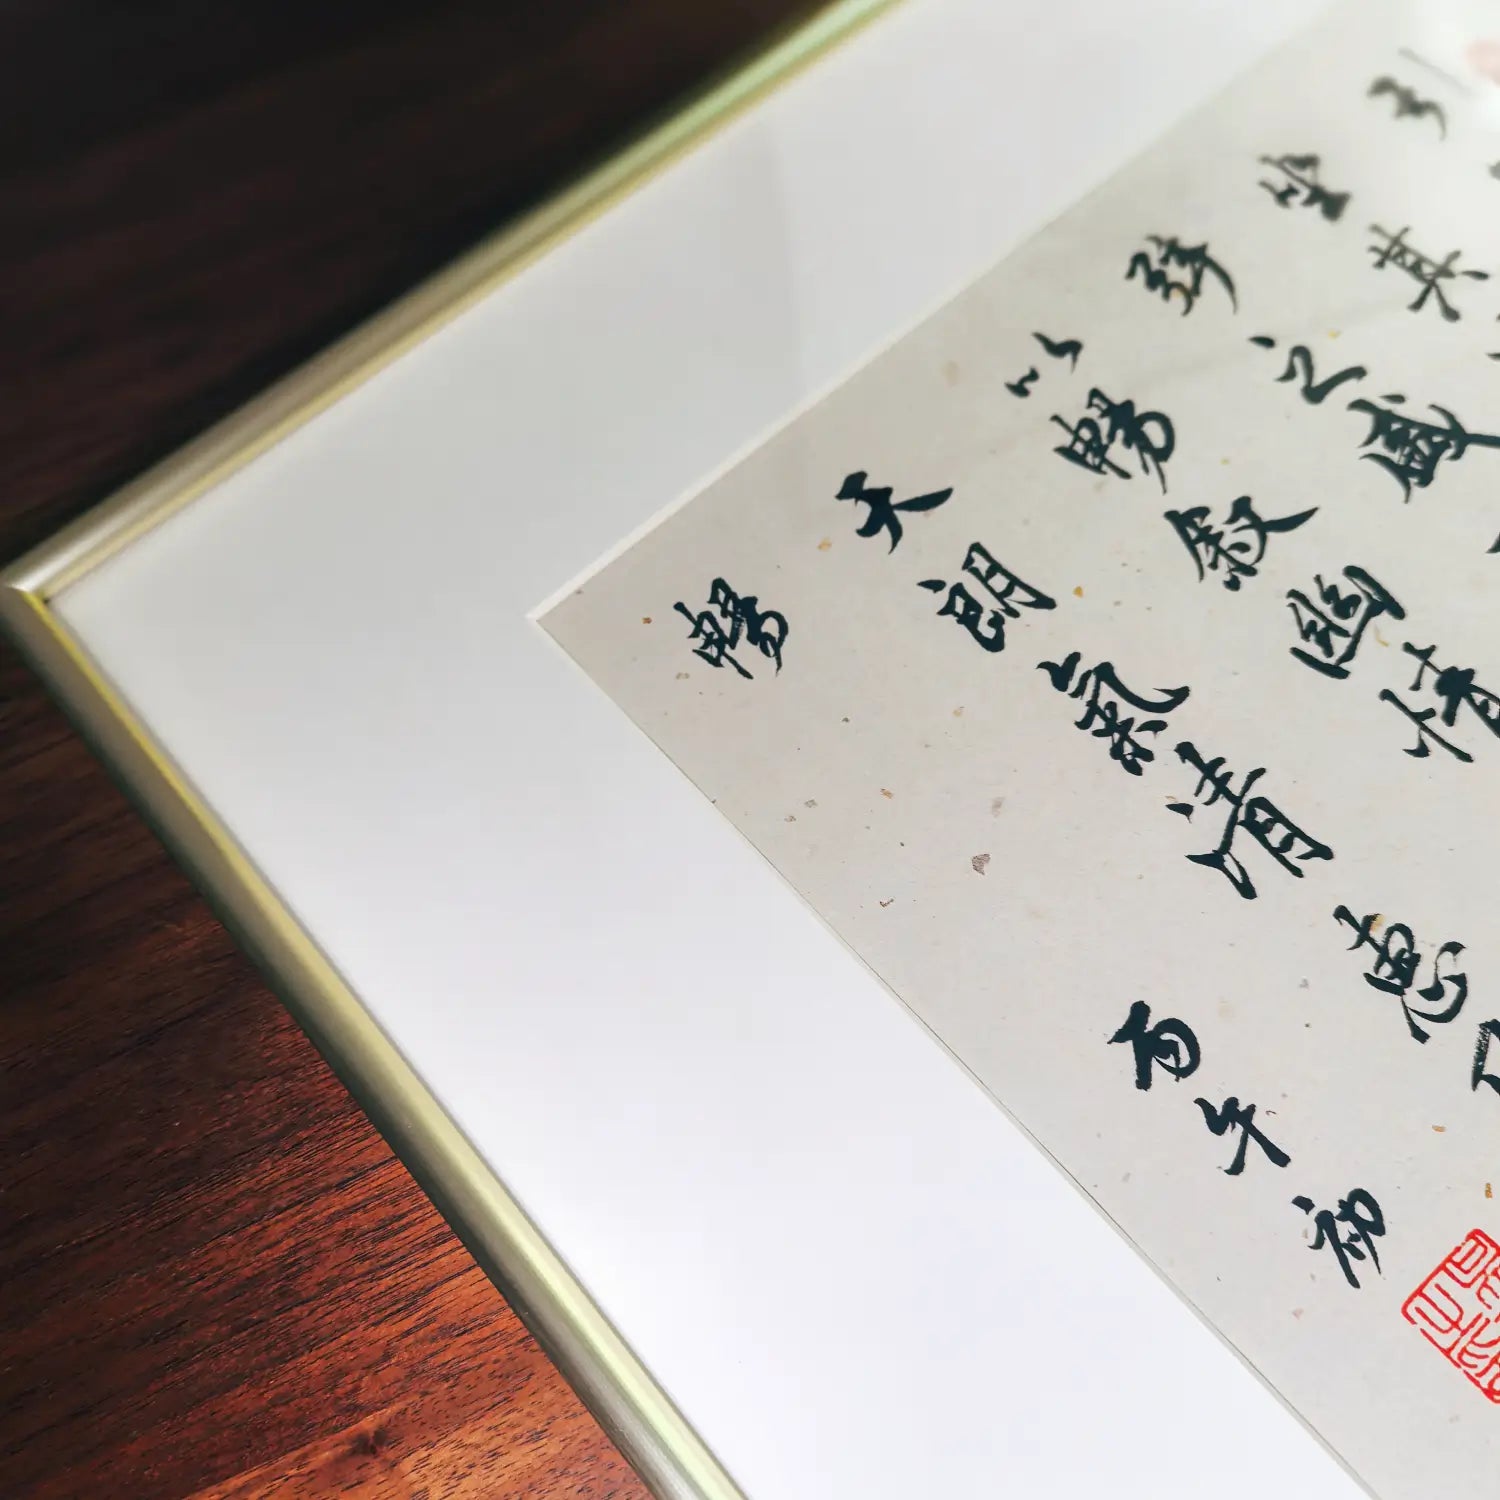 引
坐其
弦之盛
以暢敘幽情
天朗氣清惠
暢
丙午初